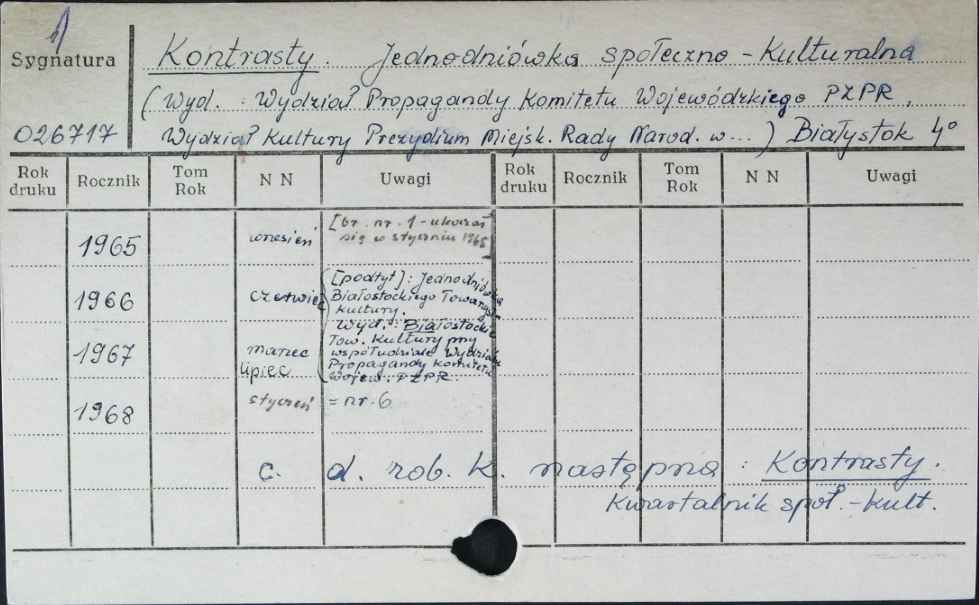 Sygnatura
026717
Kontrasty. Jednodniówka społeczno-Kulturalna
(Wyd.: Wydział Propagandy Komitetu Wojewódzkiego PZPR,
Wydział Kultury Prezydium Miejsk. Rady Narod. w...) Białystok 4°
Rok druku Rocznik Tom Rok N N Uwagi Rok druku Rocznik Tom Rok N N Uwagi
1965 wrzesień [br. nr. 1 - ukazał
się w styczniu 1965
1966 czerwiec [podtyt]: Jednodniówka
Białostockiego Towarzyst.
Kultury.
Wyd.: Białostockie
1967 marzec Tow. Kultury przy
lipiec współudziale Wydziału
Propagandy Komitetu
Wojew. PZPR.
1968 styczeń = nr. 6
c. d. zob. k. następna: Kontrasty.
Kwartalnik społ.-kult.